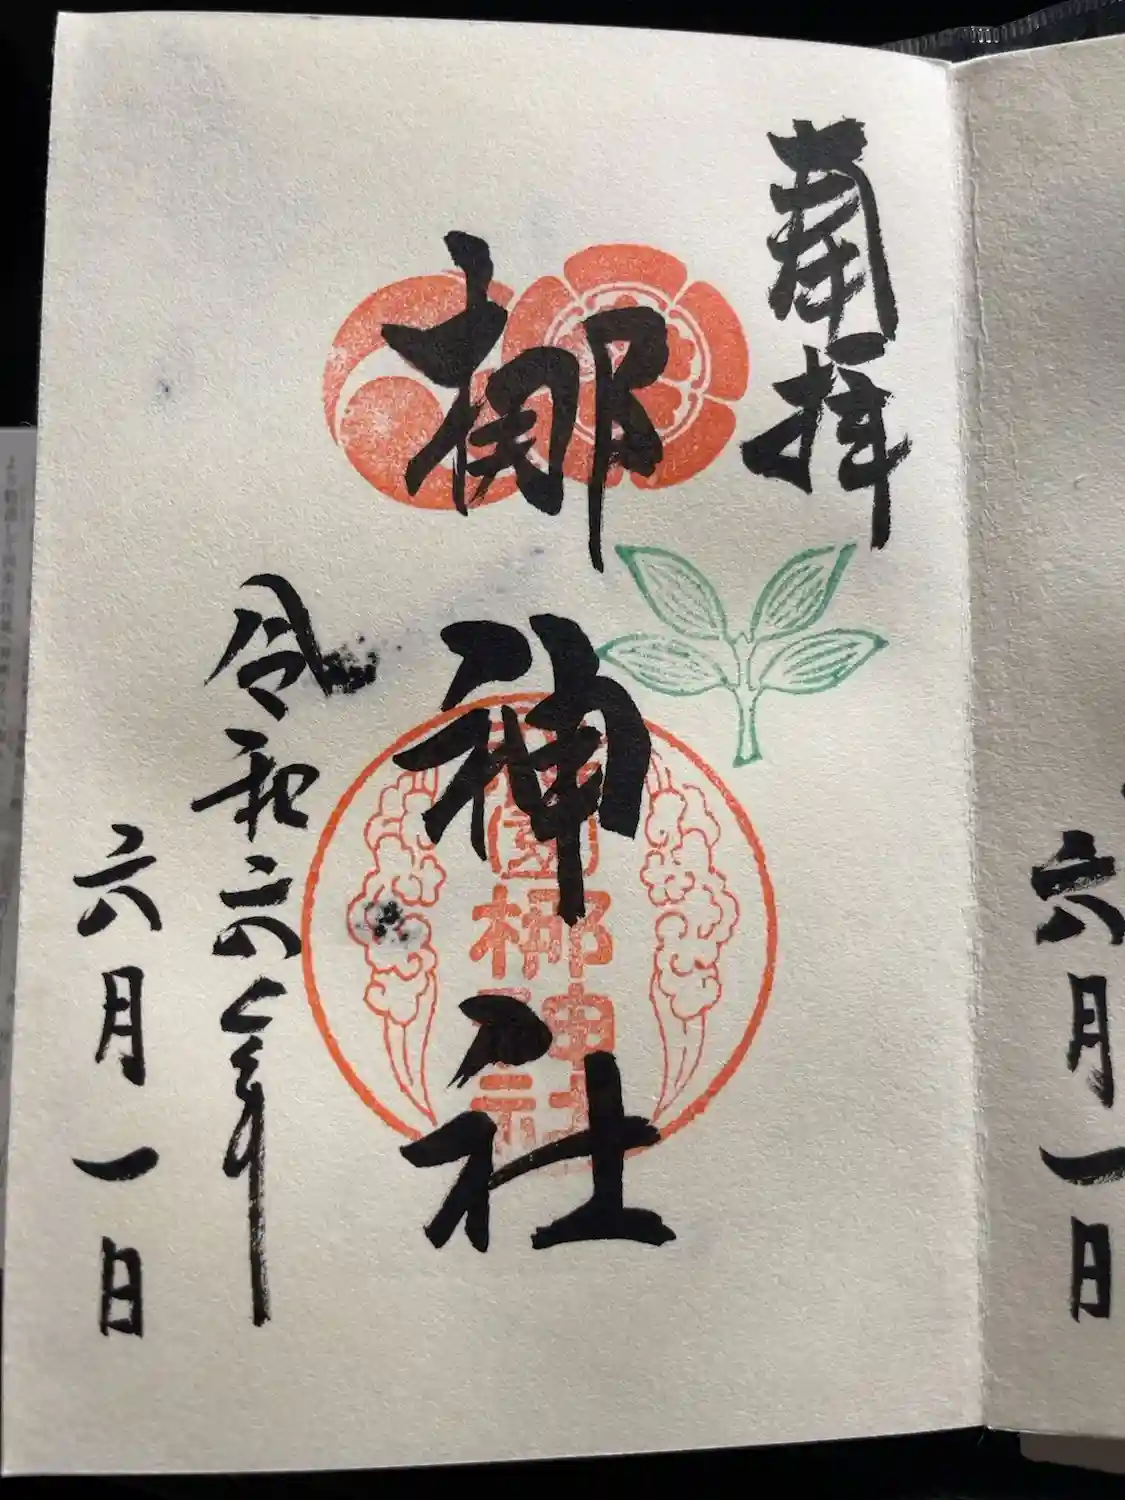 奉拝
梛神社
園梛神社
令和六年
六月一日
六月一日